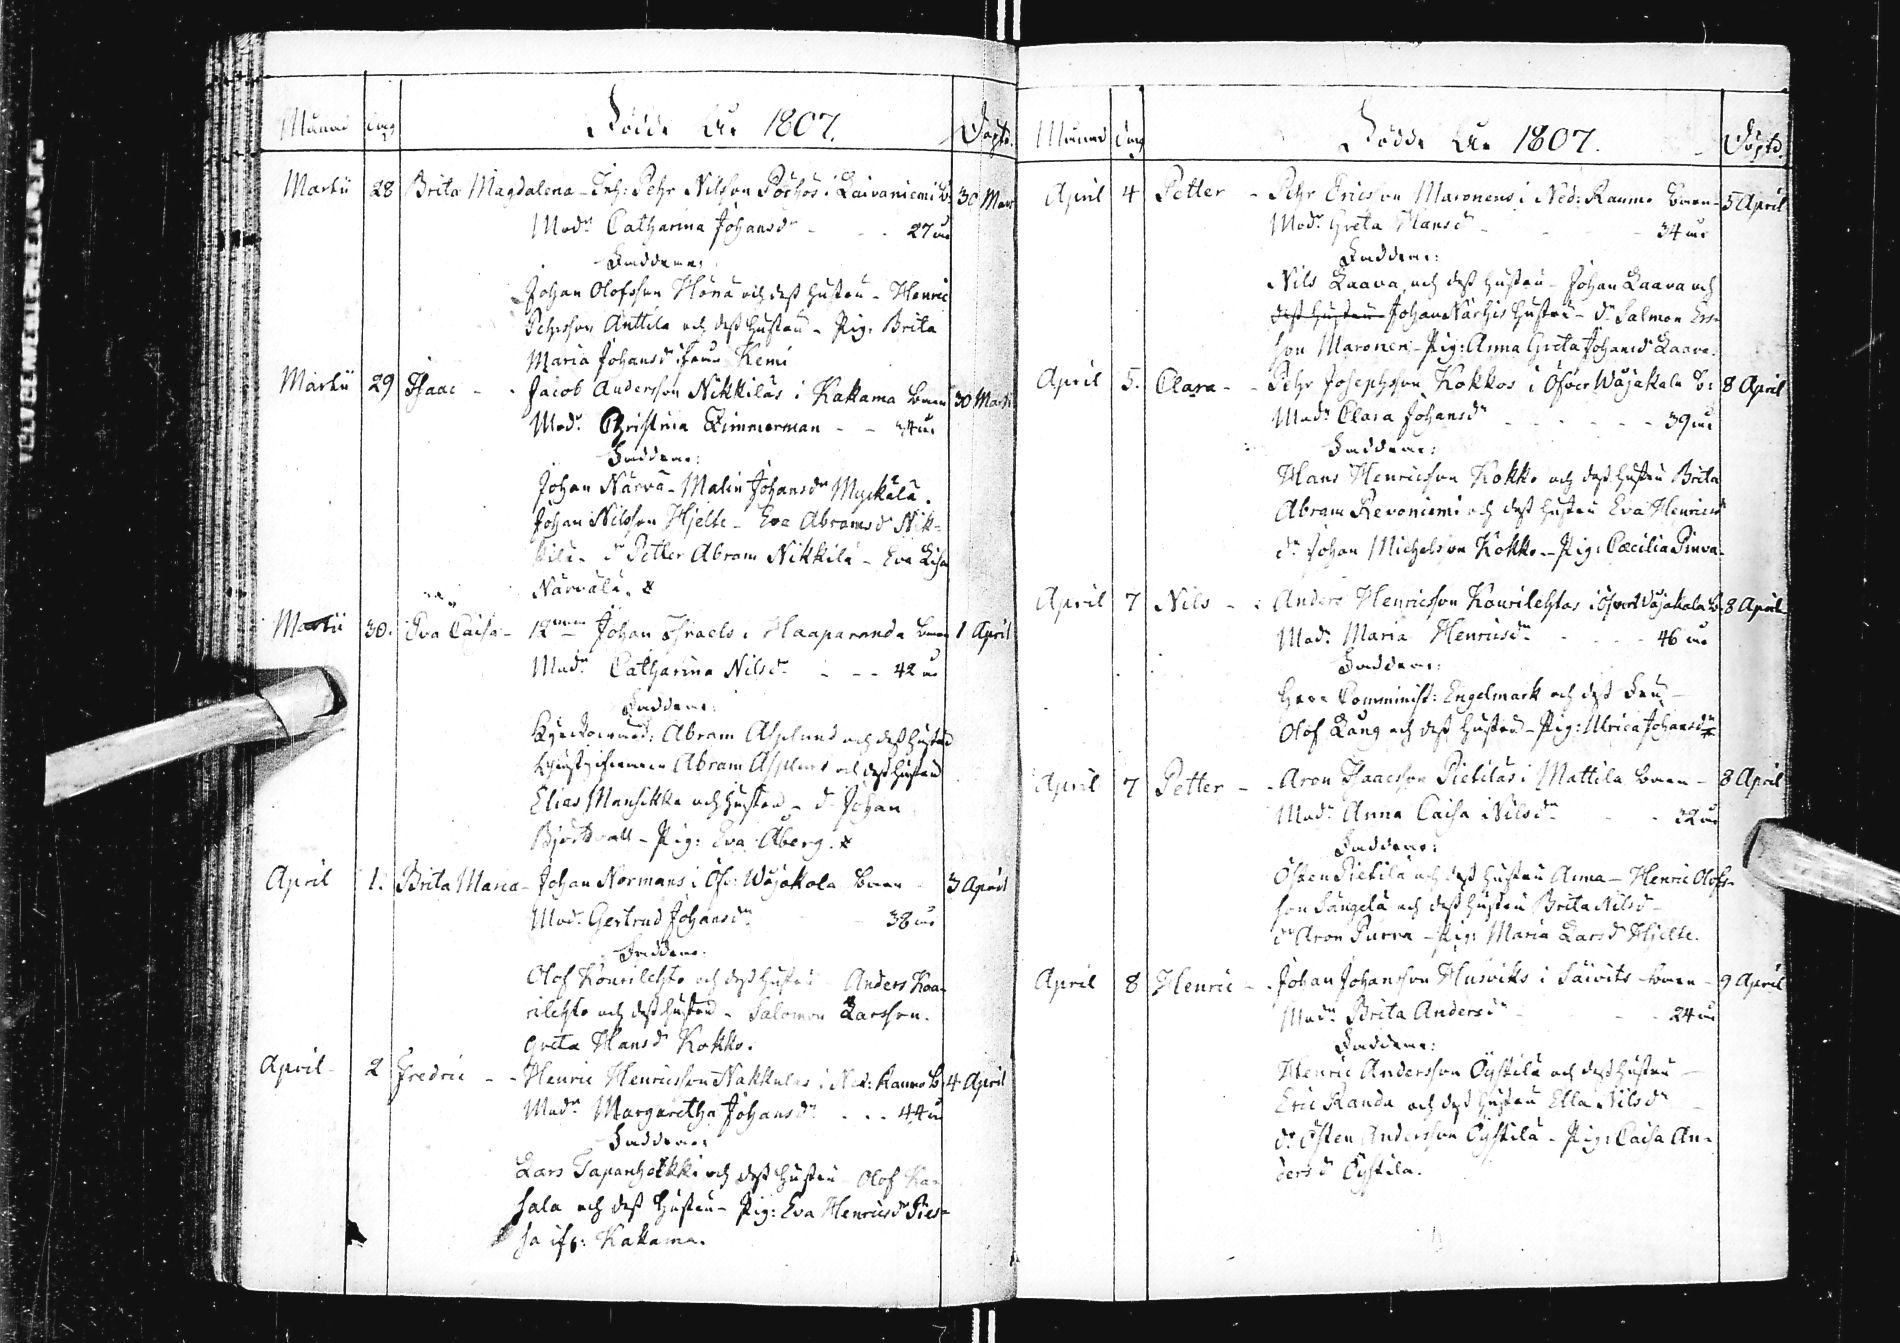 Månad dag Födde År 1807. Döpte.
Martii 28 Brita Magdalena - Inh: Pehr Nilsson Pörhös i Laivaniemi b. 30 Mart
Modr Catharina Johansdr - - 27 år
Faddrar:
Johan Olofsson Hörä och dess hustru - Henric
Pehrsson Anttila och dess hustru - Pig: Brita
Maria Johansdr ifrån Kemi
Martii 29 Isaac - - Jacob Andersson Nikkiläs i Kakama barn 30 Marti
Modr Christina Zimmerman - - 34 år
Faddrar:
Johan Närvä - Malin Johansdr Myckälä.
Johan Nilsson Hjelte - Eva Abramsdr Nik-
kilä - dr Petter Abram Nikkilä - Eva Lisa
Närvälä.
Martii 30. Eva Caisa - Johan Israels i Haaparanda barn 1 April
Modr Catharina Nilsdr - - - 42 år
Faddrar:
Kyrkovärd: Abram Asplund och dess hustru
Abram Asplund och dess hustru
Elias Mansikka och hustru - dr Johan
Björkvall - Pig: Eva Åberg.
April 1. Brita Maria - Johan Normans i Öfv: Wojakala barn - 3 April
Modr Gertrud Johansdr - 38 år
Faddrar:
Olof Kourilehto och dess hustru - Anders Kou-
rilehto och dess hustru - Salomon Larsson.
Greta Hansdr Kokko.
April - 2 Fredric - - Henric Henricsson Nakkulas i Ned: Raumo b. 4 April
Modr Margaretha Johansdr - - - 44 år
Faddrar:
Lars Tapanheikki och dess hustru - Olof Kas-
sala och dess hustru - Pig: Eva Henricsdr Pies-
sa ifr: Kakama.
Månad dag Födde År 1807. Döpte.
April 4 Petter - Pehr Ericsson Maronens i Ned: Raumo barn - 5 April
Modr Greta Hansdr - - - 34 år
Faddrar:
Nils Laava och dess hustru - Johan Laava och
dess hustru Johan Närhis hustru - dr Salmon Ers-
son Maronen - Pig: Anna Greta Johansdr Laava.
April 5. Clara - - Pehr Josephsson Kokkos i Öfver Wojakala b: 8 April
Modr Clara Johansdr - - - 39 år
Faddrar:
Hans Henricsson Kokko och dess hustru Brita
Abram Revoniemi och dess hustru Eva Henricsdr
dr Johan Michelsson Kokko - Pig: Cæcilia Pinva-
April 7 Nils - - Anders Henricsson Kourilehtos i Öfver Wojakala b. 8 April
Modr Maria Henricsdr - - - 46 år
Faddrar:
Herr Comminist: Engelmark och dess Fru -
Olof Lång och dess hustru - Pig: Ulrica Johansdr
April 7 Petter - - Aron Isaacsson Pietiläs i Mattila barn - 8 April
Modr Anna Caisa Nilsdr - - 32 år
Faddrar:
Östen Pietilä och dess hustru Anna - Henric Olofs-
son Sangela och dess hustru Brita Nilsdr -
dr Aron Purra - Pig: Maria Larsdr Hjelte.
April 8 Henric - - Johan Johansson Husviks i Säivits barn - 9 April
Modr Brita Andersdr - - - 24 år
Faddrar:
Henric Andersson Öystilä och dess hustru -
Eric Randa och dess hustru Ella Nilsdr -
dr Östen Andersson Öystilä - Pig: Caisa An-
dersdr Öystilä.